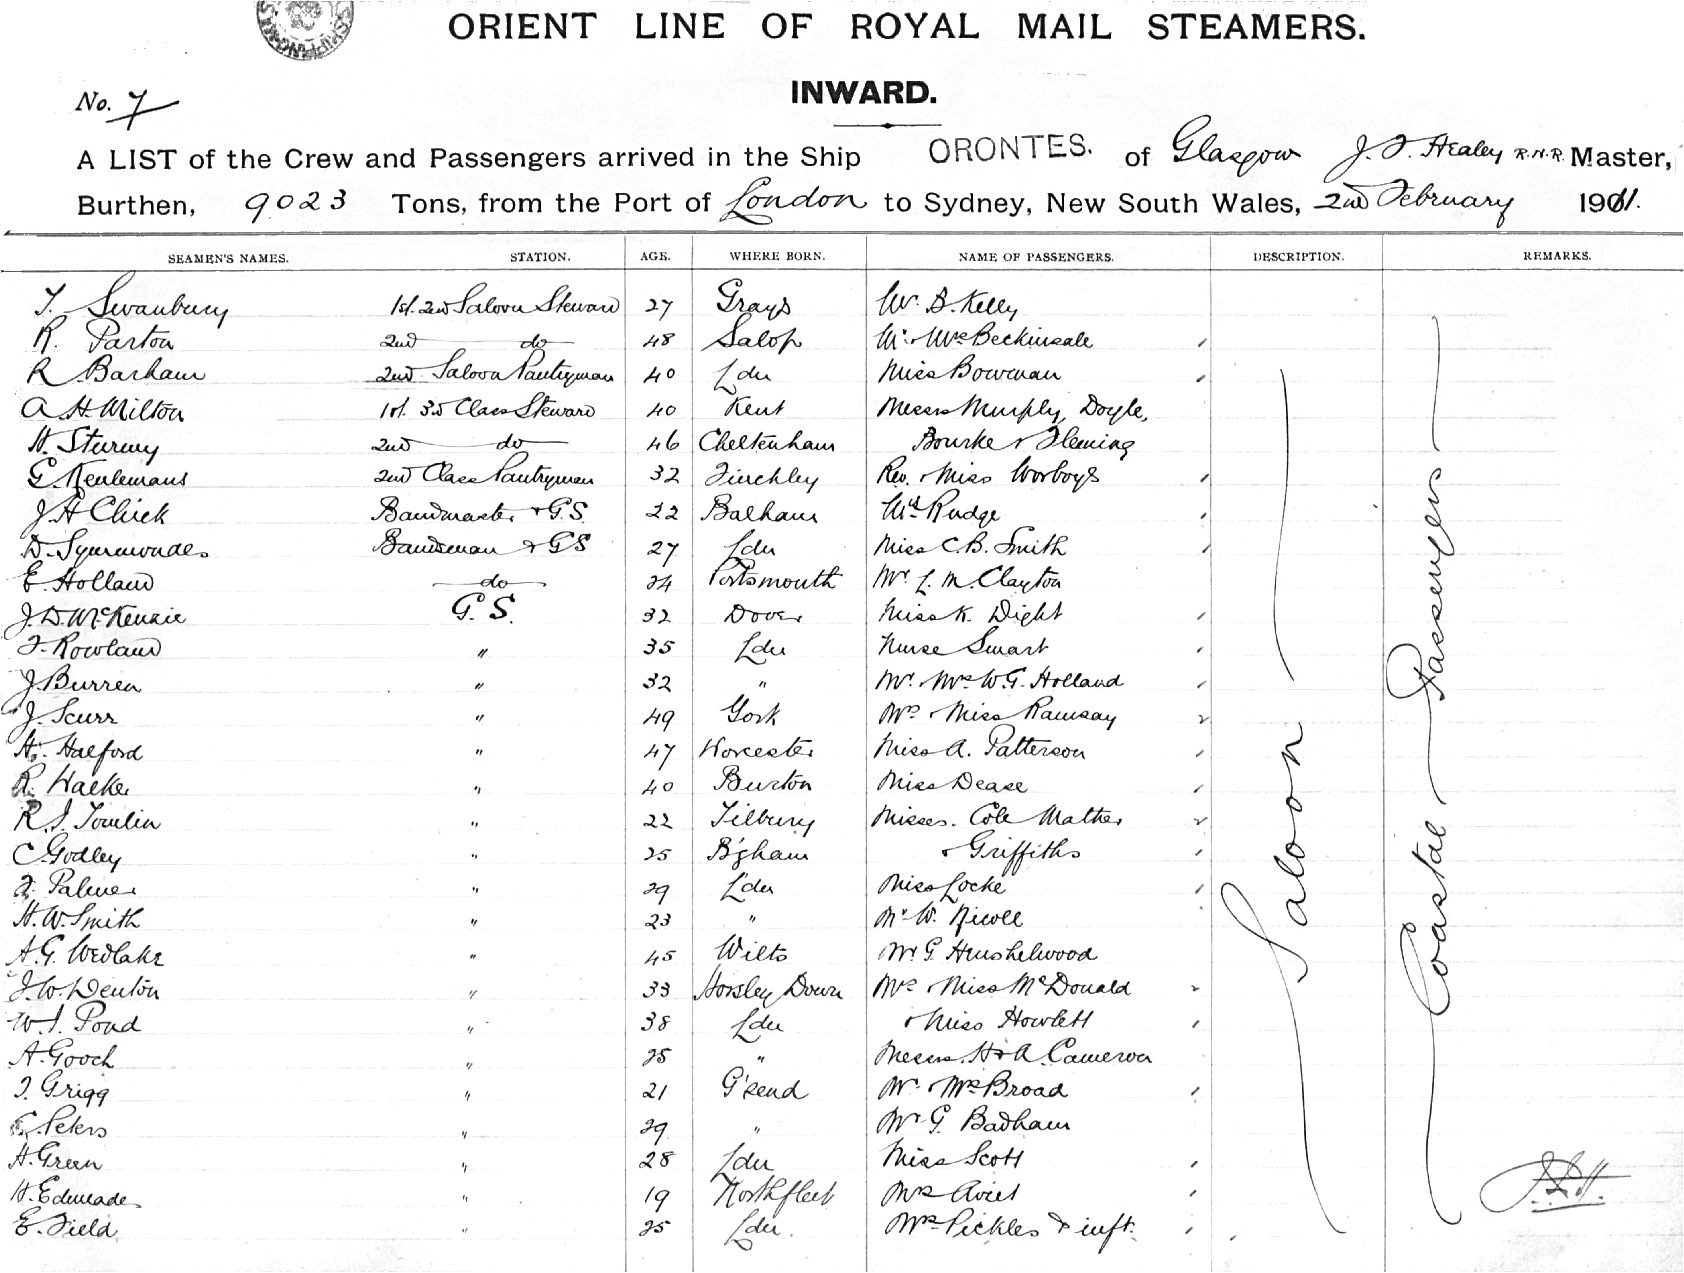 ORIENT LINE OF ROYAL MAIL STEAMERS.
INWARD.
No. 7
A LIST of the Crew and Passengers arrived in the Ship ORONTES. of Glasgow J. F. Healey R.N.R. Master,
Burthen, 9023 Tons, from the Port of London to Sydney, New South Wales, 2nd February 1911.
SEAMEN'S NAMES. STATION. AGE. WHERE BORN. NAME OF PASSENGERS. DESCRIPTION. REMARKS.
T. Swanbury 1st. 2nd Saloon Steward 27 Grays Mr. B. Kelly
R. Parton 2nd do 48 Salop Mr. & Mrs Beckinsale
R Barham 2nd Saloon Pantryman 40 Ldn Miss Bowman
A. H. Milton 1st. 3rd Class Steward 40 Kent Messrs Murphy, Doyle,
H. Sturmy 2nd do 46 Cheltenham Bourke & Fleming
G. Keulemans 2nd Class Pantryman 32 Finchley Rev. & Miss Worboys
J. H Chick Bandmaster & G.S. 22 Balham Rudge
D. Symmondes Bandsman & GS 27 Ldn Miss C. B. Smith
E Holland do 24 Portsmouth Mr. L. M. Clayton
J. D. McKenzie G. S. 32 Dover Miss K. Dight
F. Rowland " 35 Ldn Nurse Smart
J. Burren " 32 " Mr. Mrs W. G. Holland
J. Scurr " 49 York Mrs & Miss Ramsay
H. Halford " 47 Worcester Miss A. Patterson
R. Hacker " 40 Burton Miss Dease
R. J. Tomlin " 22 Tilbury Misses. Cole Mather
C. Godley " 25 B'gham & Griffiths
F. Palmer " 29 Ldn Miss Locke
H. W. Smith " 23 " Mr W. Nicoll
A. G. Wedlake " 45 Wilts Mr G. Hinshelwood
J. W. Denton " 33 Horsley Down Mrs & Miss McDonald
W. J. Pond " 38 Ldn & Miss Howlett
A. Gooch " 25 " Messrs. H & A Cameron
J. Grigg " 21 G'send Mr. & Mrs Broad
Peters " 29 " Mr G. Badham
H. Green " 28 Ldn Miss Scott
H. Edmeades " 19 Northfleet Mrs
E. Field " 25 Ldn. Mrs Pickles & inft.
Saloon
Coastal Passengers